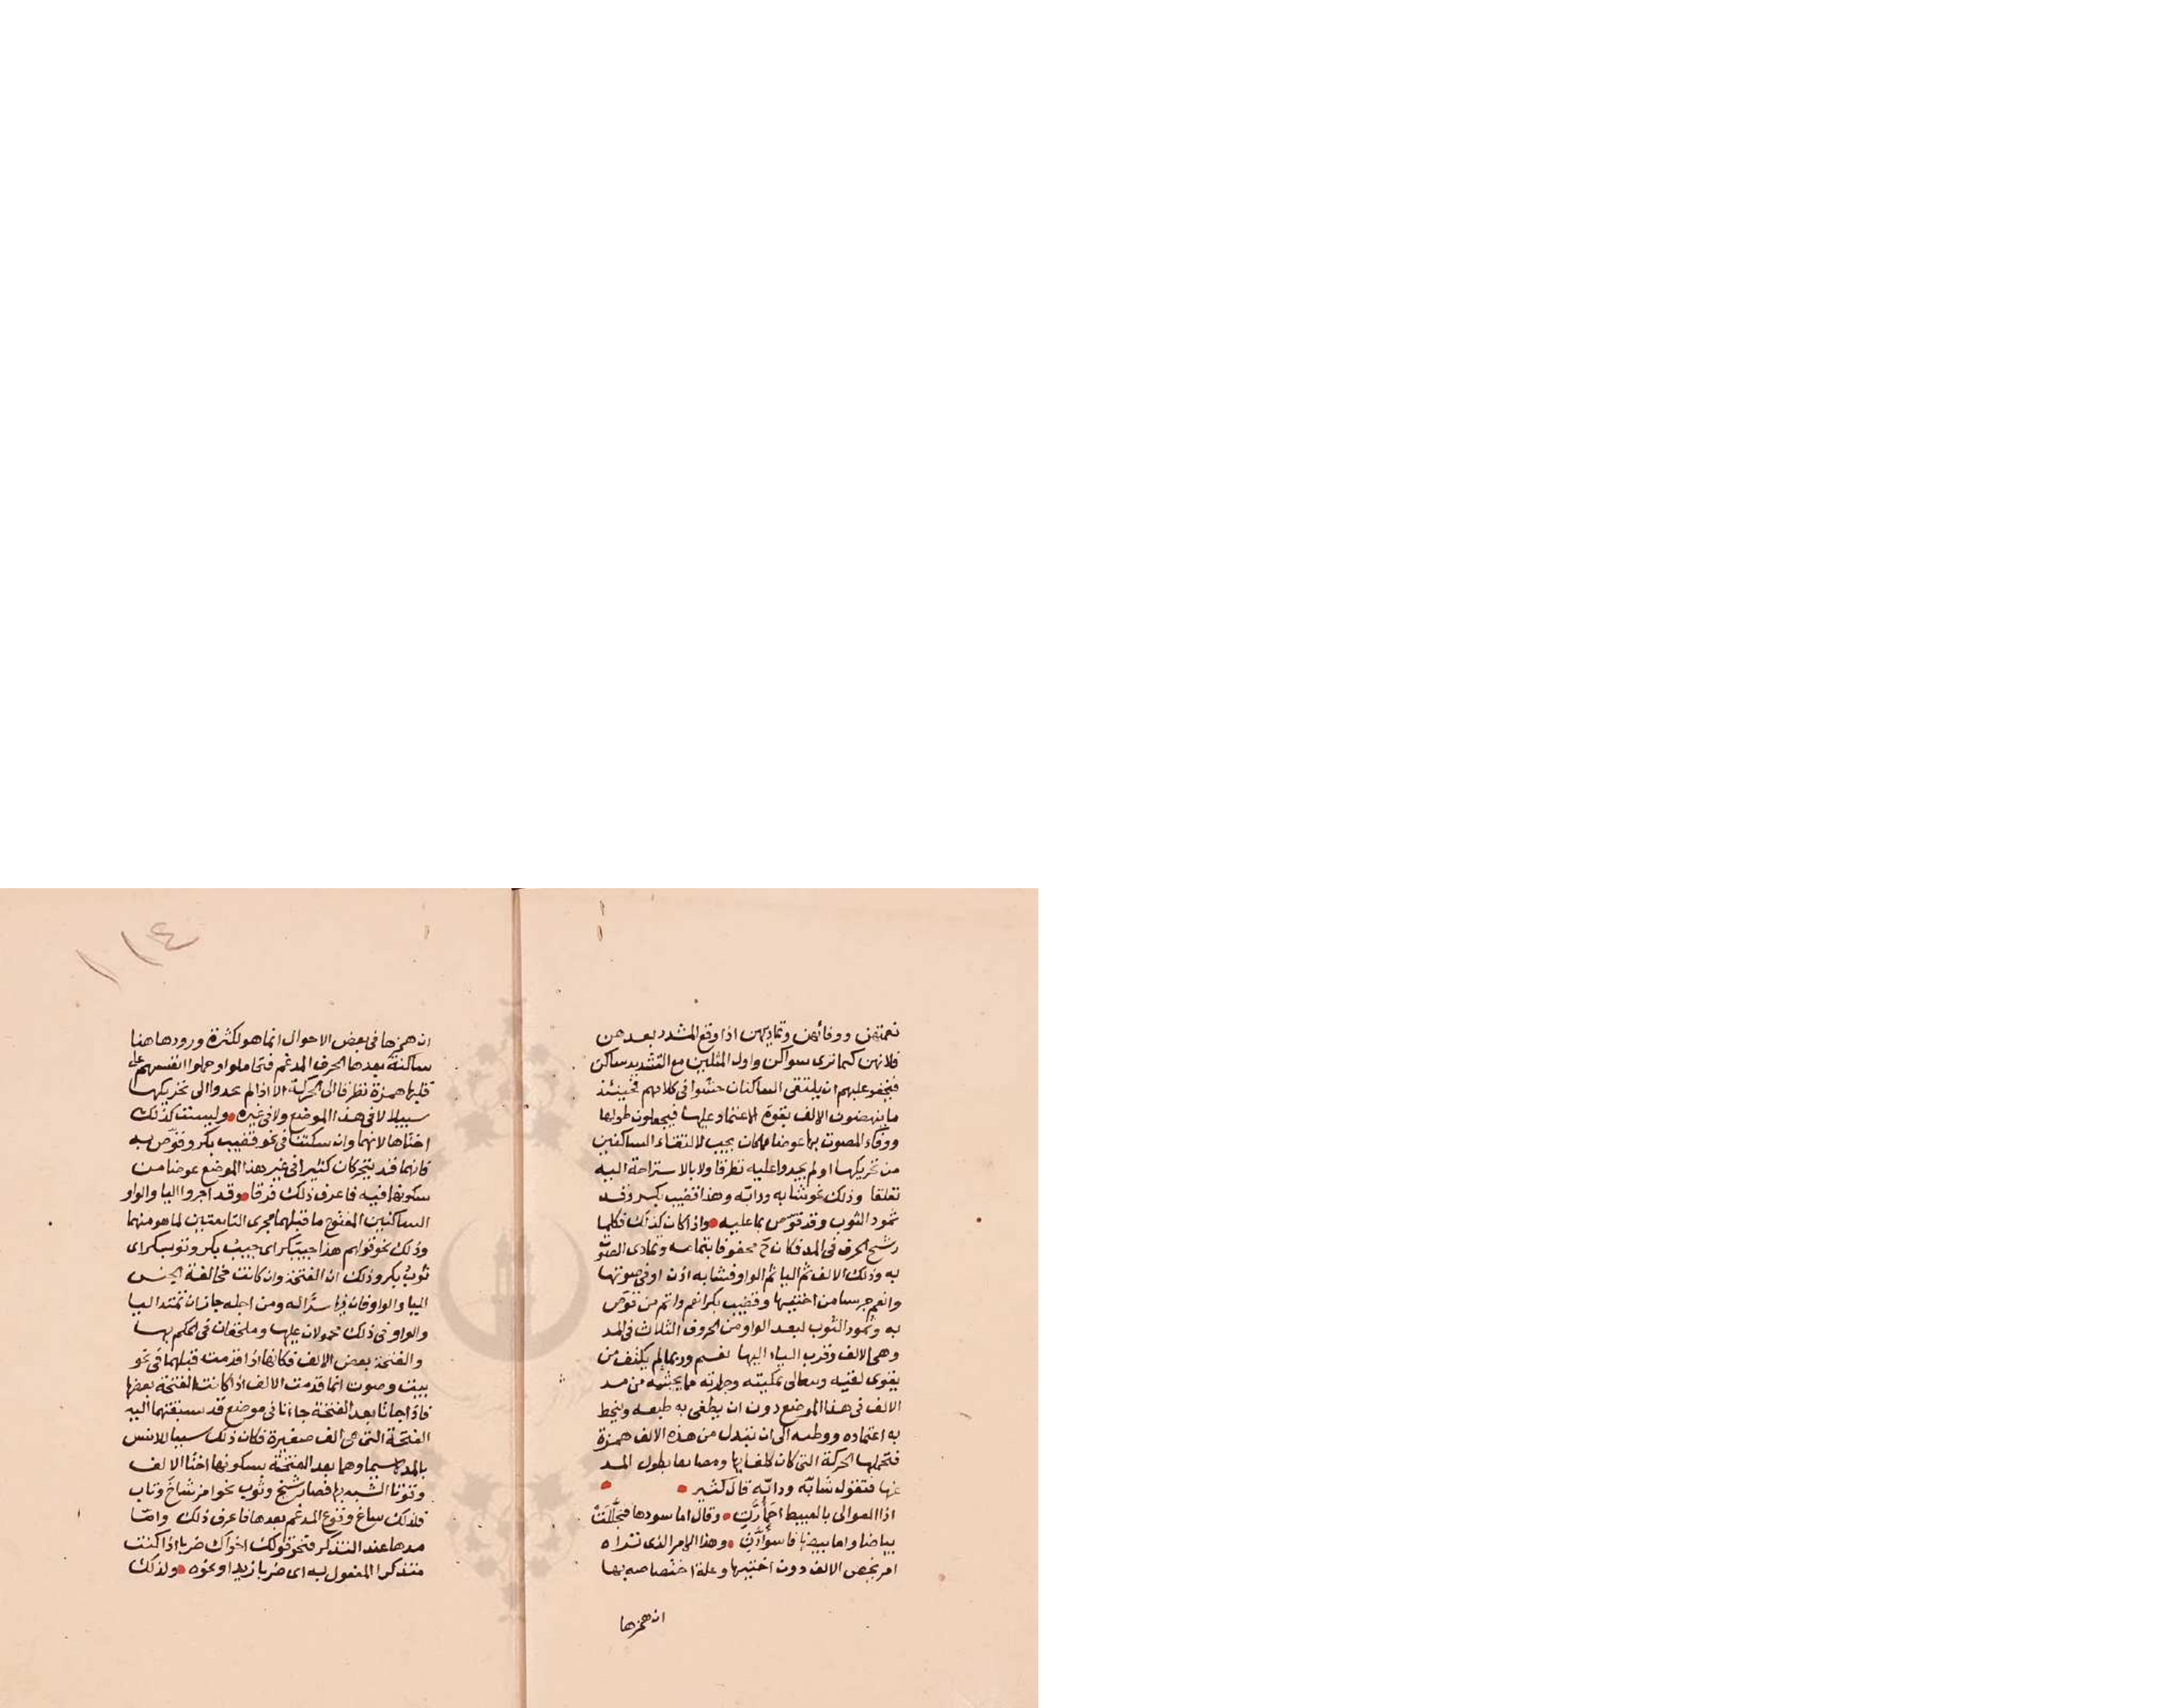 نعمتهن ووفائهن وتماديهن اذا وقع المشدد بعدهن
فلانهن كما ترى سواكن واول المثلين مع التشديد ساكن
فيجفو عليهم ان يلتقى الساكنان حشوا فى كلامهم فحينئذ
ما ينهضون الالف بقوة الاعتماد عليها فيجعلون طولها
ووفاء الصوت بها عوضا مما كان يجب لالتقاء الساكنين
من تحريكها اذ لم يجدوا عليه تطرقا ولا بالاستراحة اليه
تعلقا وذلك نحو شابه ودابه وهذا قضيب بكر وقد
تمود الثوب وقد قوص بما عليه واذا كان كذلك فكلما
رسخ الحرف فى المد فكان ح محفوفا بتمامه وتمادى الصوت
به وذلك الالف ثم اليا ثم الواو فشابه اذن اوفى صوتها
وانعم جرسا من اختيها وقضيب بكر انعم واتم من قوص
به وتمود الثوب لبعد الواو من الحروف الثلاث فى المد
وهى الالف وقرب الياء اليها نعم وربما لم يكتف من
يقوى لغته ويتعالى تمكينه وجهارته مما يجشمه من مد
الالف فى هذا الموضع دون ان يطغى به طبعه ويتخط
به اعتماده ووطئه الى ان يبدل من هذه الالف همزة
فتحملها الحركة التى كان كلفا بها ومصانعا بطول المد
عنها فتقول شأبّه ودأبّه قال كثير
اذا العوالى بالعبيط احمأرّت وقال اما سودها فتجللت
بياضا واما بيضها فاسوأدّت وهذا الامر الذى تراه
امر يخص الالف دون اختيها وعلة اختصاصه بها
ان همزها
١١٤
ان همزها فى بعض الاحوال انما هو لكثرة ورودها هنا
ساكنة بعدها الحرف المدغم فتحاملوا وحملوا انفسهم على
قلبها همزة تطرقا الى الحركة الا اذا لم يجدوا الى تحريكها
سبيلا لا فى هذا الموضع ولا فى غيره وليست كذلك
اختاها لانهما وان سكنتا فى نحو قضيب بكر وقوص به
فانهما قد يتحركان كثيرا فى غير هذا الموضع عوضا من
سكونها فيه فاعرف ذلك فرقا وقد اجروا اليا والواو
الساكنين المفتوح ما قبلهما مجرى التابعتين لما هو منهما
وذلك نحو قولهم هذا جيبّكر اى جيبُ بكر وثوبّكر اى
ثوبُ بكر وذلك ان الفتحة وان كانت مخالفة الجنس
اليا والواو فان فيها سرّا له ومن اجله جاز ان تمتد اليا
والواو فى ذلك محمولان عليها وملحقان فى الحكم بها
والفتحة بعض الالف فكانها اذا قدمت قبلهما فى نحو
بيت وصوت انما قدمت الالف اذا كانت الفتحة بعضها
فاذا جاتا بعد الفتحة جاءتا فى موضع قد سبقتهما اليه
الفتحة التى هى الف صغيرة فكان ذلك سببا للانس
بالمد لاسيما وهما بعد الفتحة بسكونهما اختا الالف
وقوتا الشبه بها فصار شيخ وثوب نحوا من شاخ وثاب
فلذلك ساغ وقوع المدغم بعدها فاعرف ذلك وامّا
مدها عند التذكر فنحو قولك اخواك ضربا اذا كنت
متذكرا المفعول به اى ضربا زيدا ونحوه ولذلك